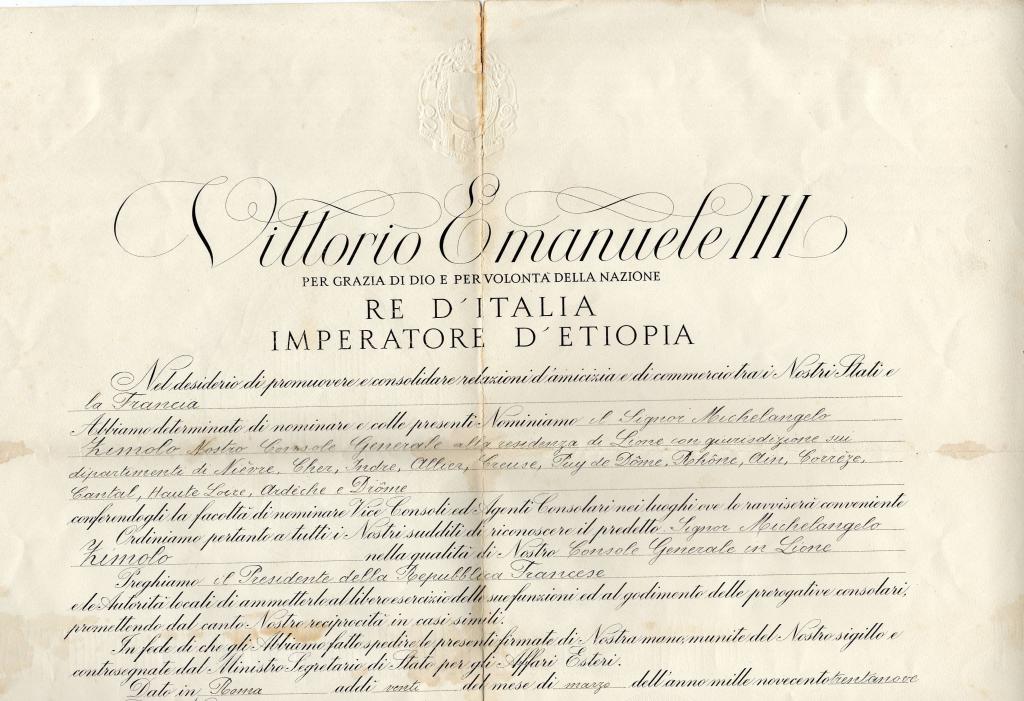 Vittorio Emanuele III
PER GRAZIA DI DIO E PER VOLONTÀ DELLA NAZIONE
RE D'ITALIA
IMPERATORE D'ETIOPIA
Nel desiderio di promuovere e consolidare relazioni d'amicizia e di commercio tra i Nostri Stati e
la Francia
Abbiamo determinato di nominare e colle presenti Nominiamo il Signor Michelangelo
Zimolo Nostro Console Generale alla residenza di Lione con giurisdizione sui
dipartimenti di Nièvre, Cher, Indre, Allier, Creuse, Puy de Dôme, Rhône, Ain, Corrèze,
Cantal, Haute Loire, Ardèche e Drôme
conferendogli la facoltà di nominare Vice Consoli ed Agenti Consolari nei luoghi ove lo ravviserà conveniente
Ordiniamo pertanto a tutti i Nostri sudditi di riconoscere il predetto Signor Michelangelo
Zimolo nella qualità di Nostro Console Generale in Lione
Preghiamo il Presidente della Repubblica Francese
e le Autorità locali di ammetterlo al libero esercizio delle sue funzioni ed al godimento delle prerogative consolari,
promettendo dal canto Nostro reciprocità in casi simili.
In fede di che gli Abbiamo fatto spedire le presenti firmate di Nostra mano, munite del Nostro sigillo e
controsegnate dal Ministro Segretario di Stato per gli Affari Esteri.
Dato in Roma addì venti del mese di marzo dell'anno mille novecento trentanove